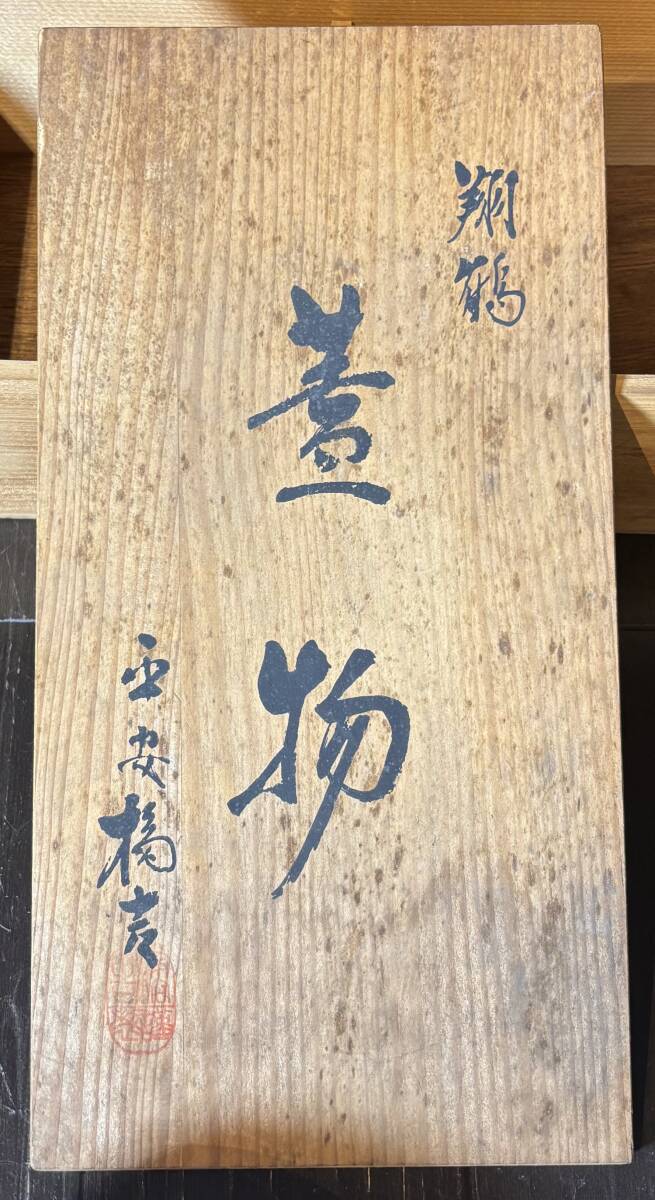 翔鶴
蓋物
平安橘吉